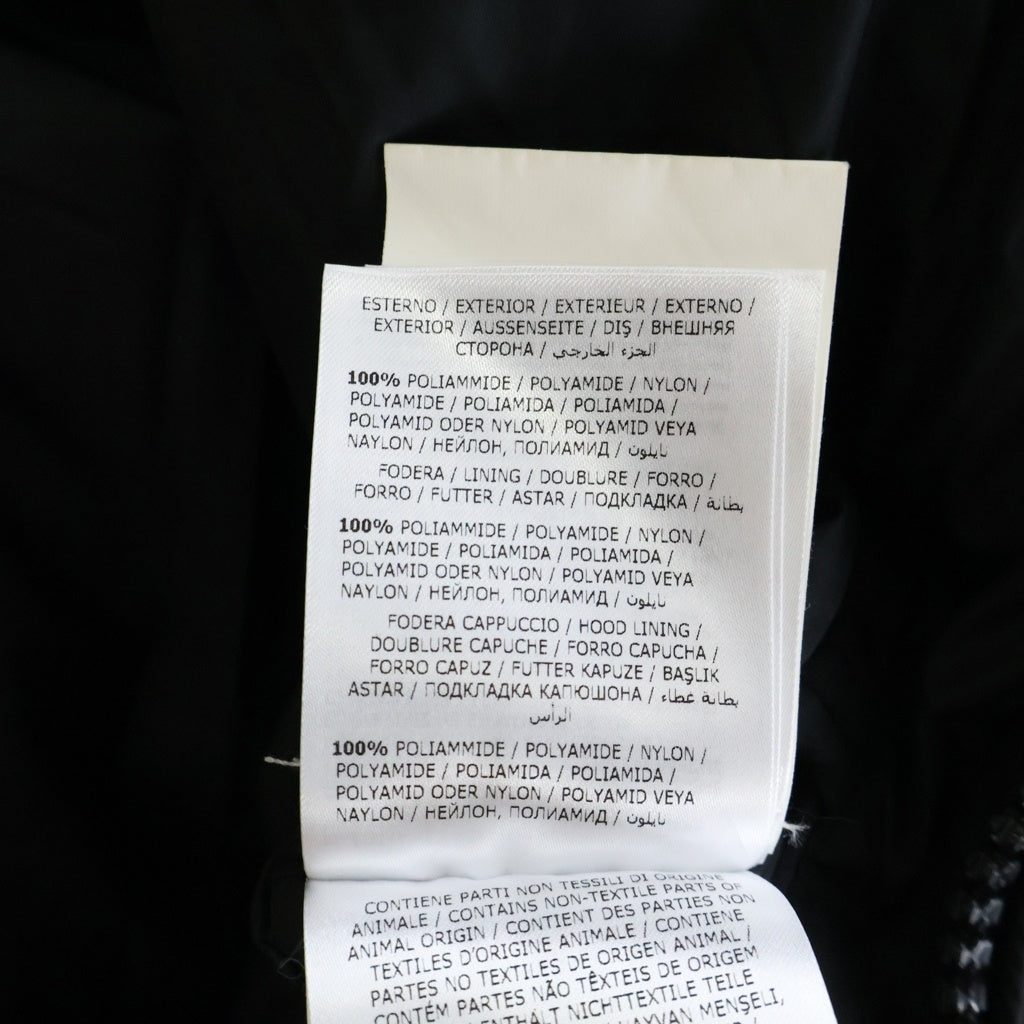 ESTERNO / EXTERIOR / EXTERIEUR / EXTERNO /
EXTERIOR / AUSSENSEITE / DIŞ / ВНЕШНЯЯ
СТОРОНА / الجزء الخارجي
100% POLIAMMIDE / POLYAMIDE / NYLON /
POLYAMIDE / POLIAMIDA / POLIAMIDA /
POLYAMID ODER NYLON / POLYAMID VEYA
NAYLON / НЕЙЛОН, ПОЛИАМИД / نايلون
FODERA / LINING / DOUBLURE / FORRO /
FORRO / FUTTER / ASTAR / ПОДКЛАДКА / بطانة
100% POLIAMMIDE / POLYAMIDE / NYLON /
POLYAMIDE / POLIAMIDA / POLIAMIDA /
POLYAMID ODER NYLON / POLYAMID VEYA
NAYLON / НЕЙЛОН, ПОЛИАМИД / نايلون
FODERA CAPPUCCIO / HOOD LINING /
DOUBLURE CAPUCHE / FORRO CAPUCHA /
FORRO CAPUZ / FUTTER KAPUZE / BAŞLIK
ASTAR / ПОДКЛАДКА КАПЮШОНА / بطانة غطاء
الرأس
100% POLIAMMIDE / POLYAMIDE / NYLON /
POLYAMIDE / POLIAMIDA / POLIAMIDA /
POLYAMID ODER NYLON / POLYAMID VEYA
NAYLON / НЕЙЛОН, ПОЛИАМИД / نايلون
CONTIENE PARTI NON TESSILI DI ORIGINE
ANIMALE / CONTAINS NON-TEXTILE PARTS OF
ANIMAL ORIGIN / CONTIENT DES PARTIES NON
TEXTILES D'ORIGINE ANIMALE / CONTIENE
PARTES NO TEXTILES DE ORIGEN ANIMAL /
CONTÉM PARTES NÃO TÊXTEIS DE ORIGEM
NICHTTEXTILE TEILE
MENŞELİ,